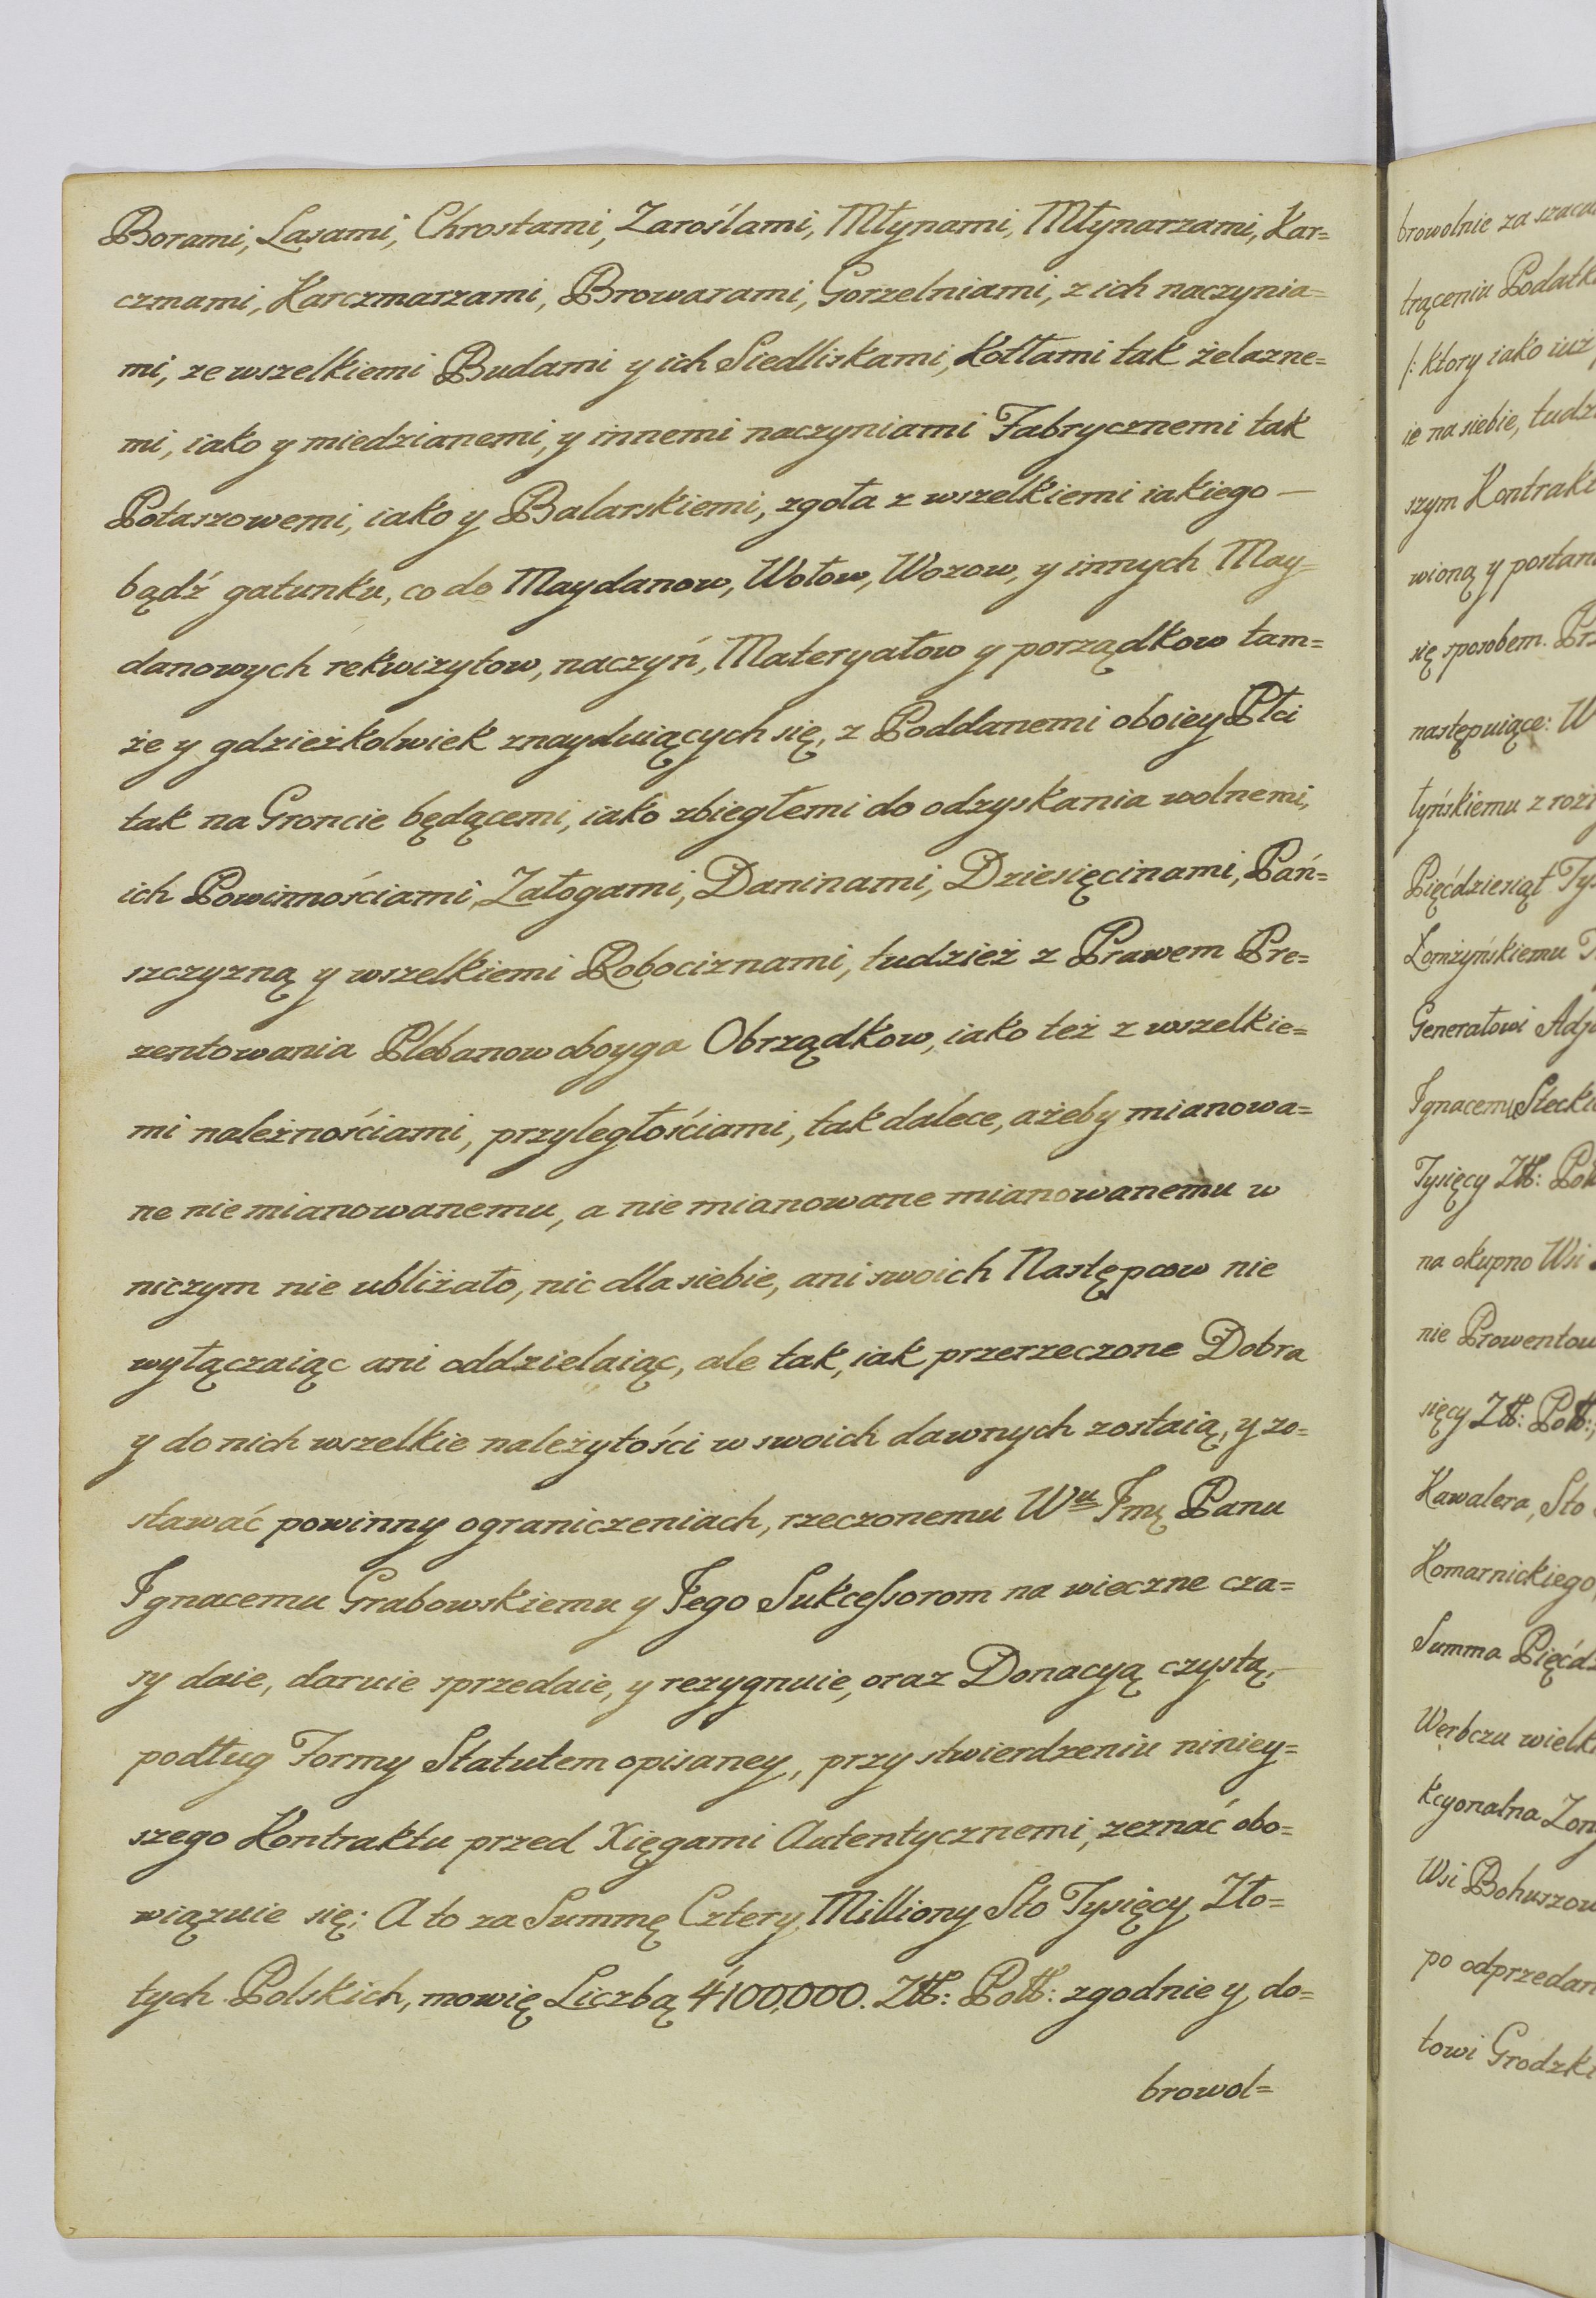 Borami, Lasami, Chrostami, Zaroślami, Młynami, Młynarzami, Kar=
czmami, Karczmarzami, Browarami, Gorzelniami, z ich naczynia=
mi, ze wszelkiemi Budami y ich Siedliskami, Kotłami tak żelazne=
mi, iako y miedzianemi, y innemi naczyniami Fabrycznemi tak
Potaszowemi, iako y Balarskiemi, zgoła z wszelkiemi iakiego —
bądź gatunku, co do Maydanow, Wołow, Wozow, y innych May=
danowych rekwizytow, naczyń, Materyałow y porządkow tam=
że y gdzieżkolwiek znayduiących się, z Poddanemi oboiey Płci
tak na Groncie będącemi, iako zbiegłemi do odzyskania wolnemi,
ich Powinnościami, Załogami, Daninami, Dziesięcinami, Pań=
szczyzną y wszelkiemi Robociznami, tudzież z Prawem Pre=
zentowania Plebanow oboyga Obrządkow, iako też z wszelkie=
mi należnościami, przyległościami, tak dalece, ażeby mianowa=
ne nie mianowanemu, a nie mianowane mianowanemu w
niczym nie ubliżało, nic dla siebie, ani swoich Następcow nie
wyłączaiąc ani oddzielaiąc, ale tak, iak przerzeczone Dobra
y do nich wszelkie należytości w swoich dawnych zostaią, y zo=
stawać powinny ograniczeniach, rzeczonemu Wu Jmę Panu
Ignacemu Grabowskiemu y Jego Sukcessorom na wieczne cza=
sy daie, daruie sprzedaie, y rezygnuie, oraz Donacyą czystą, —
podług Formy Statutem opisaney, przy stwierdzeniu niniey=
szego Kontraktu przed Xięgami Autentycznemi, zeznać obo=
wiązuie się; A to za Summę Cztery Milliony Sto Tysięcy Zło=
tych Polskich, mowię Liczbą 4'100,000. Złł: Polł: zgodnie y do=
browol=
browolnie za
trącenia
/: ktory iako iuż
ie na siebie,
szym
wioną y
się sposobem.
następuiące: W
tyńskiemu z
Pięćdziesiąt
Łomżyńskiemu
Generałowi
Ignacemu
Tysięcy Złł:
na okupno Wsi
nie
sięcy Złł: Polł:,
Kawalera, Sto
Komarnickiego,
Summa
Werbczu
kcyonalna
Wsi
po
towi